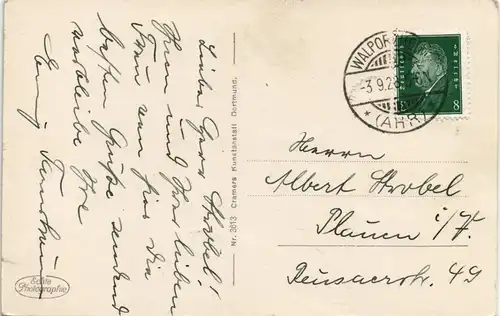 Lieber Herr Strobel!
Ihnen und Ihrer lieben
Frau von hier die
besten Grüße sendend
verbleibe Ihre
Nr. 3613 Cramers Kunstanstalt Dortmund.
Echte
Photographie
WALPOR
-3.9.28
(AHR)
8
Herrn
Albert Strobel
Plauen i/V.
Reusaerstr. 49